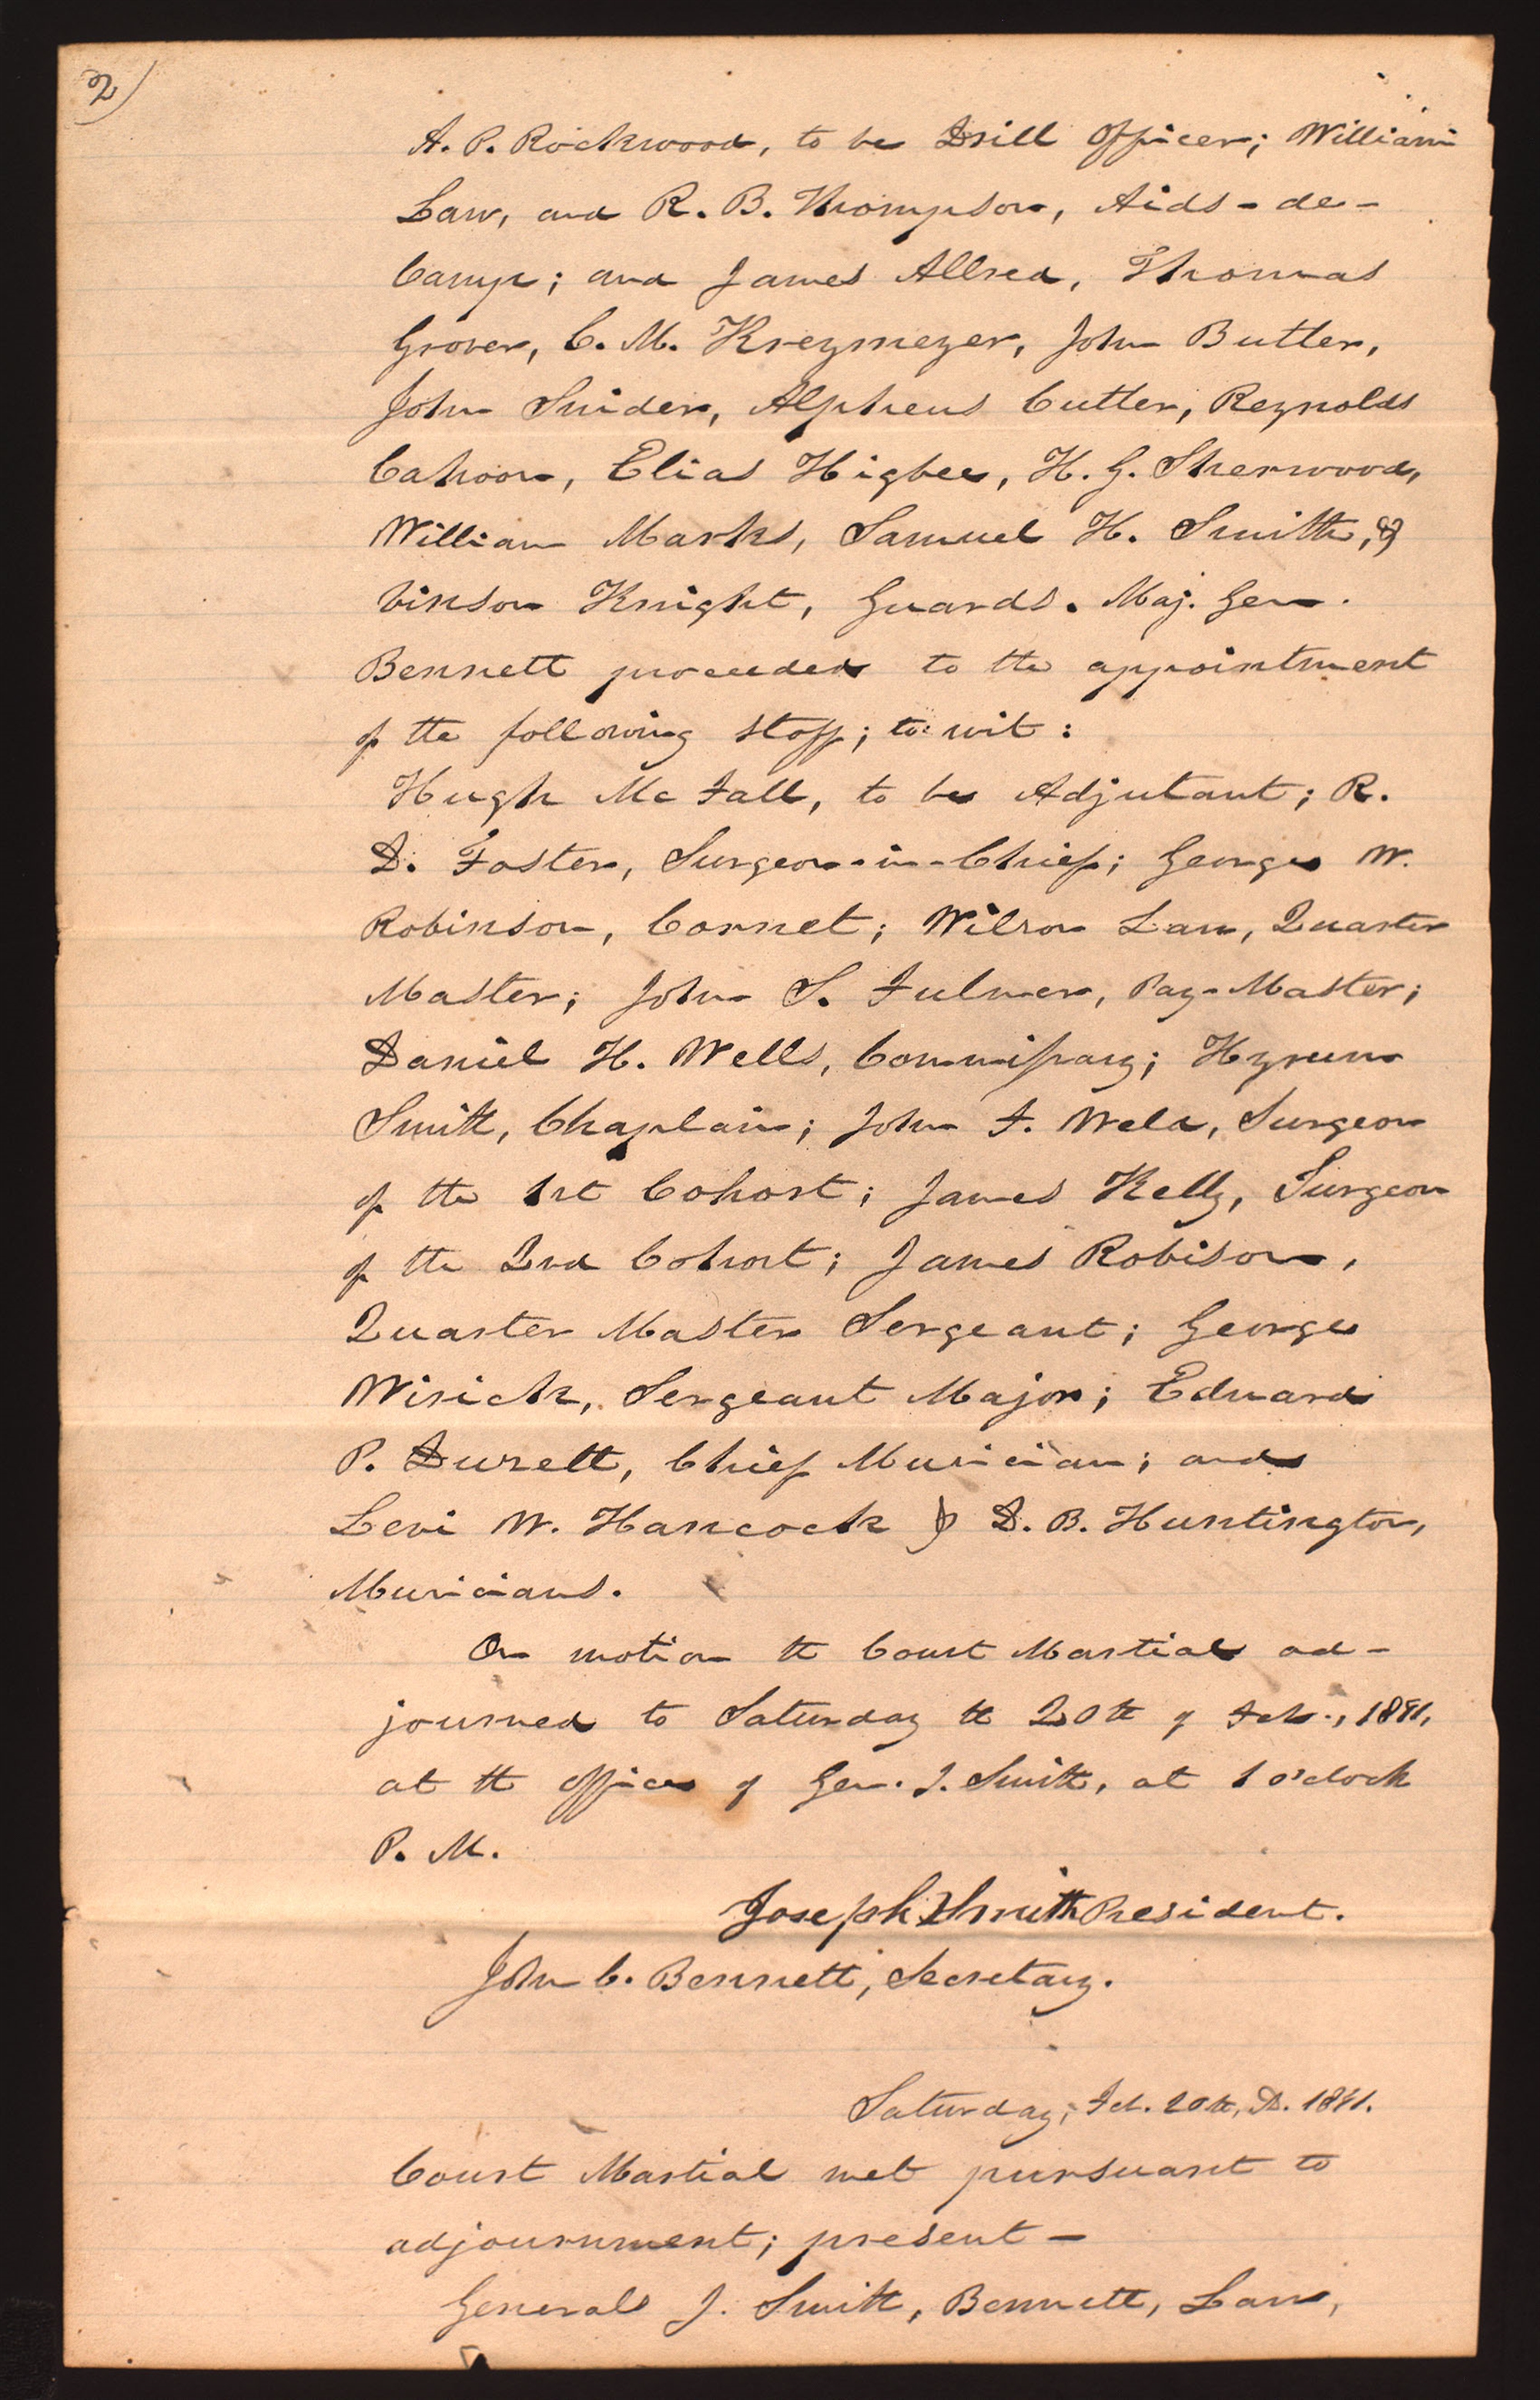 2)
A. P. Rockwood, to be Drill Officer; William
Law, and R. B. Thompson, Aids-de-
Camp; and James Allred, Thomas
Grover, C. M. Kreymeyer, John Butler,
John Snider, Alpheus Cutler, Reynolds
Cahoon, Elias Higbee, H. G. Sherwood,
William Marks, Samuel H. Smith, &
Vinson Knight, Guards. Maj. Gen.
Bennett proceeded to the appointment
of the following staff; to wit:
Hugh Mc Fall, to be Adjutant; R.
D. Foster, Surgeon-in-Chief; George W.
Robinson, Cornet; Wilson Law, Quarter
Master; John S. Fulmer, Pay-Master;
Daniel H. Wells, Commissary; Hyrum
Smith, Chaplain; John F. Weld, Surgeon
of the 1st Cohort; James Kelly, Surgeon
of the 2nd Cohort; James Robison,
Quarter Master Sergeant; George
Wirick, Sergeant Major; Edward
P. Duzett, Chief Musician; and
Levi W. Hancock & D. B. Huntington,
Musicians.
On motion the Court Martial ad-
journed to Saturday the 20th of Feb., 1841,
at the office of Gen. J. Smith, at 1 o'clock
P. M.
Joseph Smith President.
John C. Bennett, Secretary.
Saturday, Feb. 20th, A.D. 1841.
Court Martial met pursuant to
adjournment; present—
Generals J. Smith, Bennett, Law,